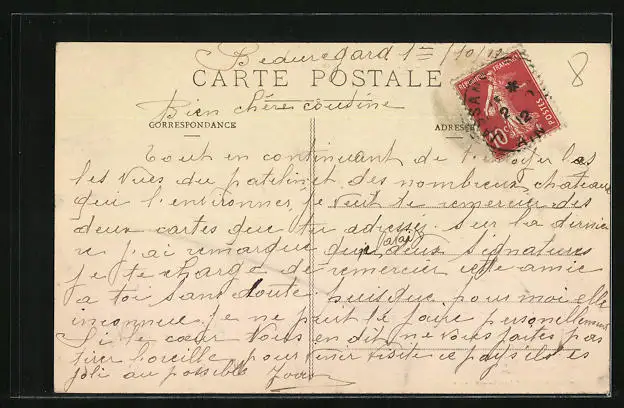 Beauregard 1er /10/12
CARTE POSTALE
8
REPUBLIQUE FRANÇAISE
POSTES
10
2 * 12
AIN
Bien chère cousine
CORRESPONDANCE
ADRESSE
Tout en continuant de t'envoyer
les vues du patelin et des nombreux chateaux
qui l'environner, je veut te remercier des
deux cartes que tu adressé. Sur la derniè
re j'ai remarqué deux signatures
je te charge de remercier cette amie
a toi sans doute puisque pour moi elle
inconnue je ne peut le faire personellement
Si le cœur Vous en dit, ne vous faites pas
tirer l'oreille pour venir visité ce pays il es
joli au possible